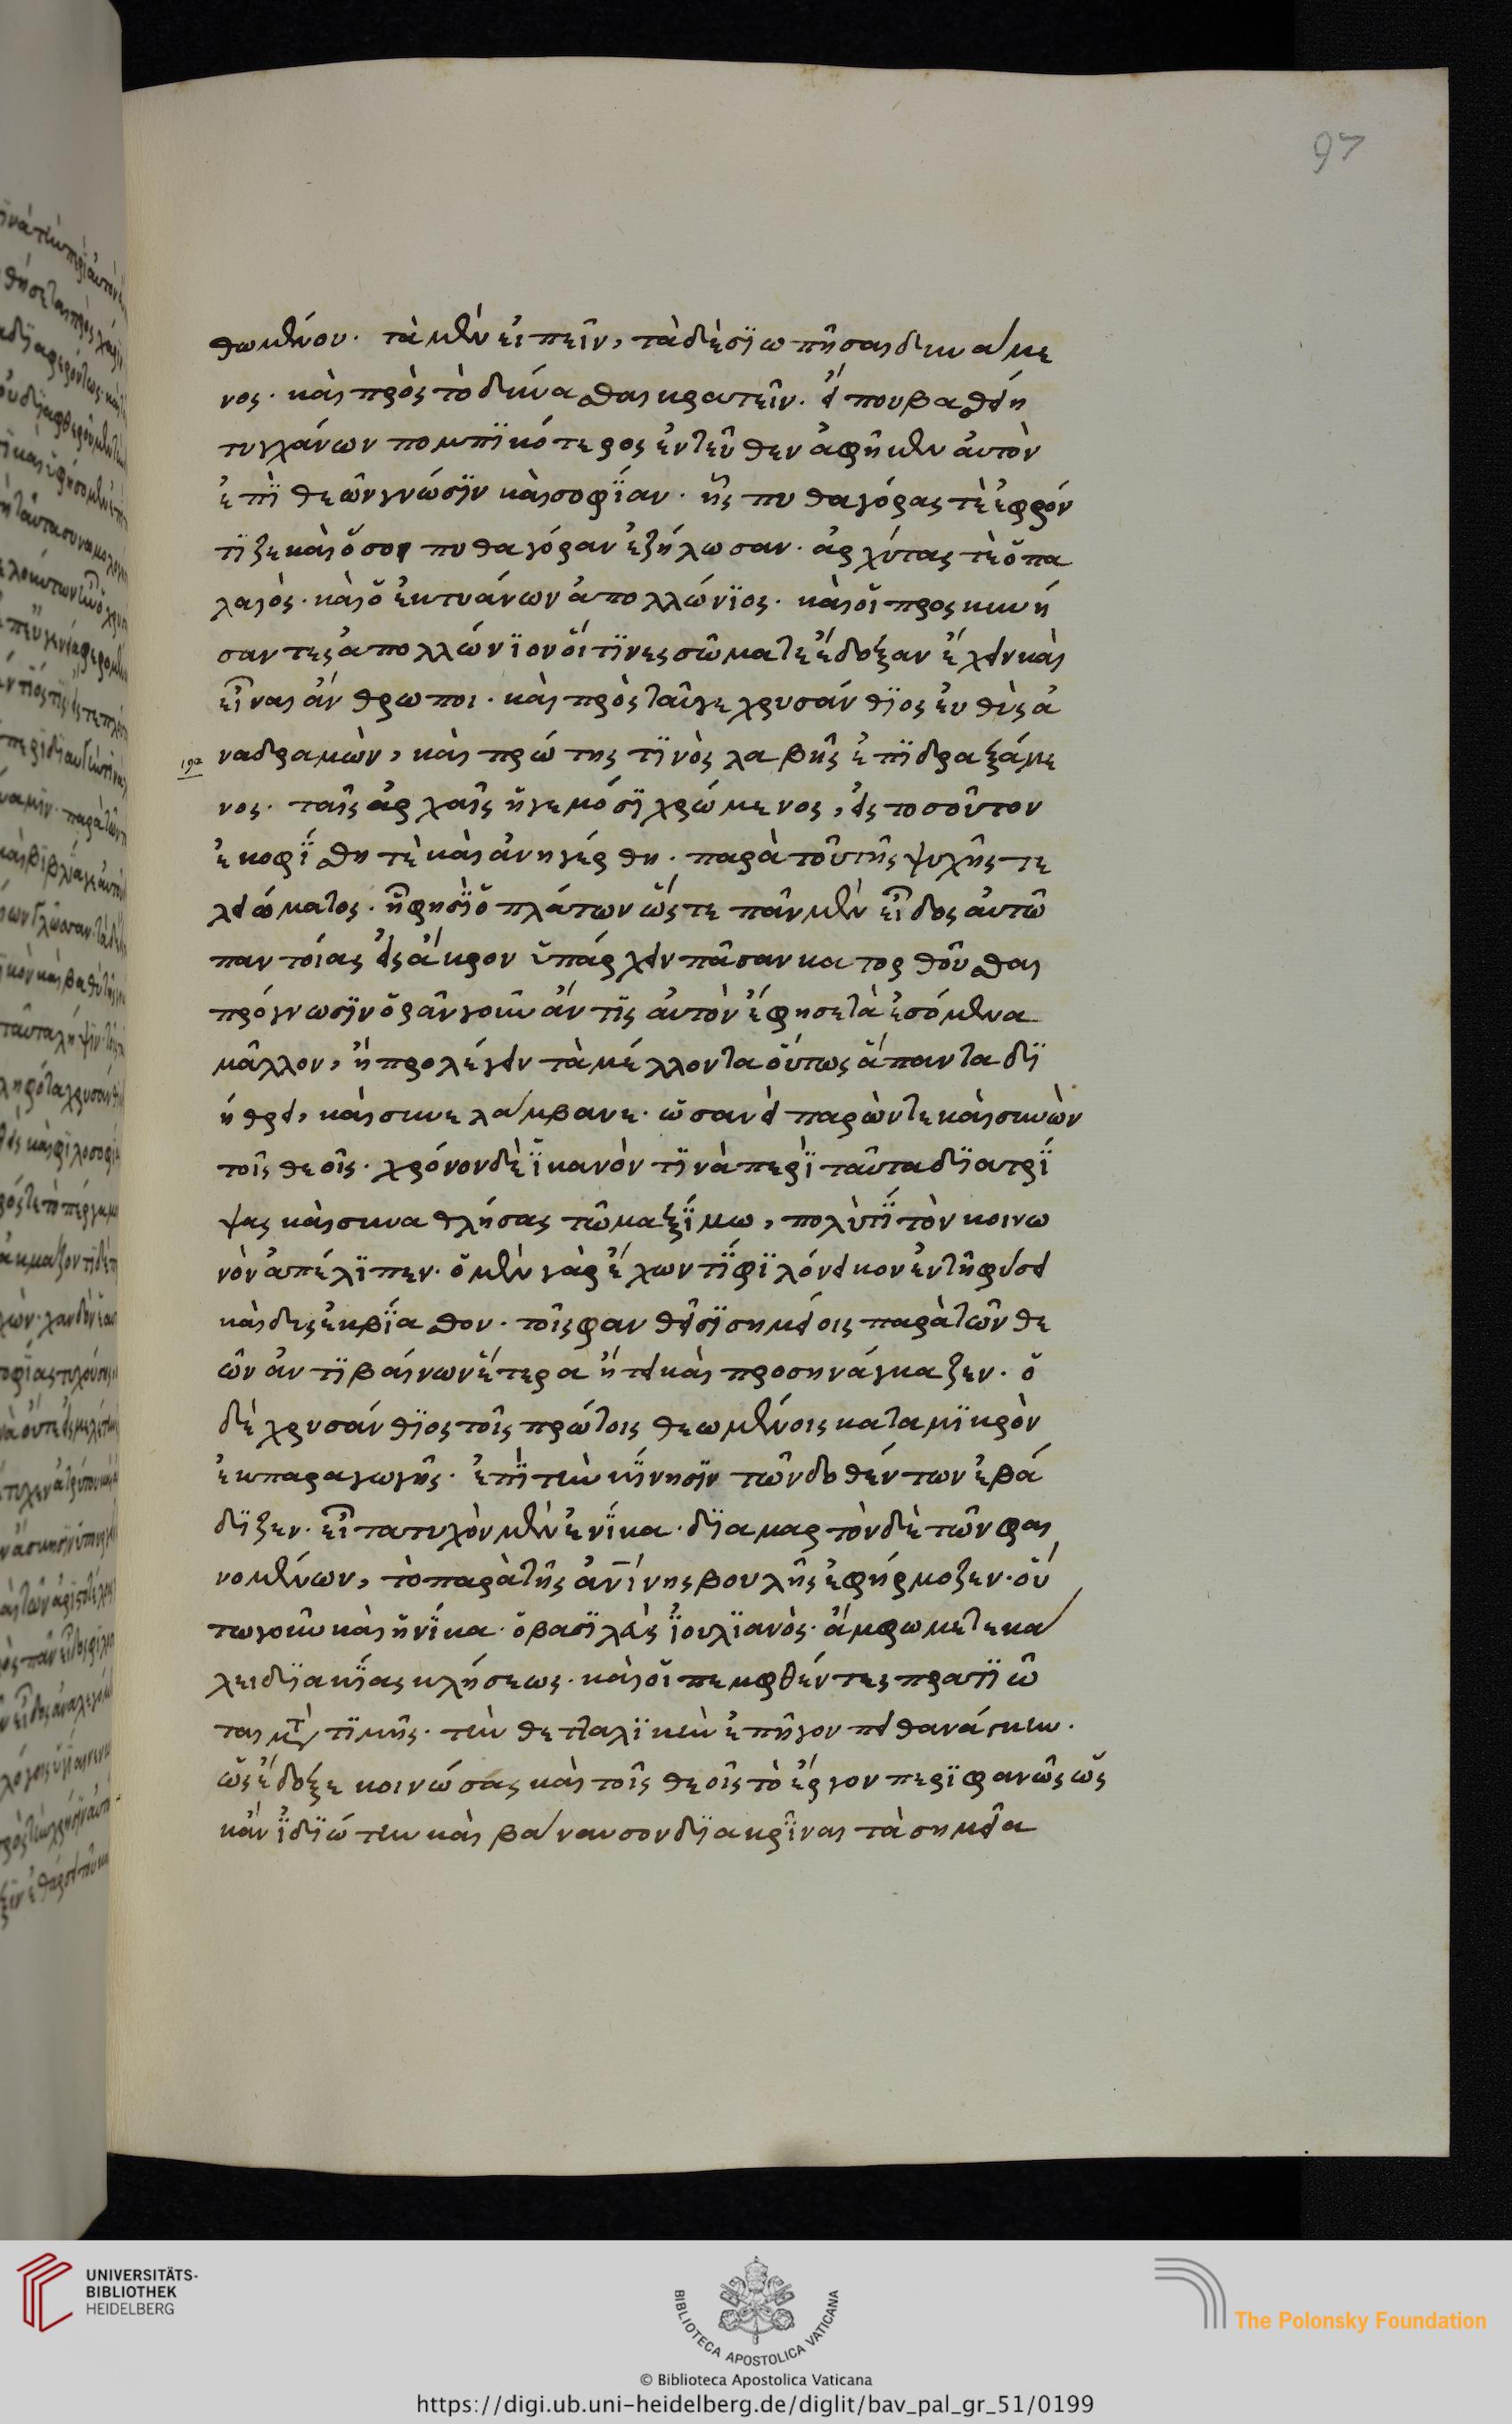 97
θωμένον. τὰ μὲν εἰπεῖν, τὰ δὲ σϊωπῆσαι δυνάμε
νος. καὶ πρὸς τὸ δύνασθαι κρατεῖν. εἴ που βασθείη
τυγχάνων πομπϊκότερος ἐντεῦθεν ἀφῆκεν αὐτὸν
ἐπῒ θεῶν γνώσϊν καὶ σοφΐαν. ἧς πυθαγόρας τὲ ἐφρόν
τϊζε καὶ ὅσοι πυθαγόραν ἐζήλωσαν. ἀρχύτας τὲ ὁ πα
λαιός. καὶ ὁ ἐκ τυάνων ἀπολλώνϊος. καὶ οἱ προσκυνή
σαντες ἀπολλώνϊον οἵτϊνες σῶμα τε ἔδοξαν ἔχειν καὶ
εἶναι ἄνθρωποι. καὶ πρὸς ταῦγε χρυσάνθϊος εὐθὺς ἀ
ναδραμὼν, καὶ πρώτης τϊνὸς λαβῆς ἐπϊδραξάμε
νος. ταῖς ἀρχαῖς ἡγεμόσϊ χρώμενος, εἰς τοσοῦτον
ἐκοφΐσθη τὲ καὶ ἀνηγέρθη. παρὰ τοῦ τῆς ψυχῆς τε
λειώματος. ᾗ φησῒ ὁ πλάτων ὥστε πᾶν μὲν εἶδος αὐτῶ
παντοίας εἰς ἄκρον ὑπάρχειν πᾶσαν κατορθοῦσθαι
πρόγνωσϊν ὁρᾶν γοῦν ἄν τϊς αὐτὸν ἔφησε τὰ ἐσόμενα
μᾶλλον, ἢ προλέγειν τὰ μέλλοντα οὕτως ἅπαντα δϊ
ήθρει, καὶ συνελάμβανε. ὡσανεὶ παρών τε καὶ συνὼν
τοῖς θεοῖς. χρόνον δὲ ϊκανὸν τϊνὰ περῒ ταῦτα δϊατρΐ
ψας καὶ συναθλήσας τῶ μαξΐμω, πολύ τΐ τὸν κοινω
νὸν ἀπέλϊπεν. ὁ μὲν γὰρ ἔχων τΐ φϊλόνεικον ἐν τῆ φύσει
καὶ δυσἐκβΐασθον. τοῖς φανθεῖσϊ σημείοις παρὰ τῶν θε
ῶν ἀντϊβαίνων ἕτερα ἤτει καὶ προσηνάγκαζεν. ὁ
δὲ χρυσάνθϊος τοῖς πρώτοις θεωμένοις κατα μϊκρὸν
ἐκ παραγωγῆς. ἐπῒ τὴν κΐνησϊν τῶν δοθέντων ἐβά
δϊζεν. εἶτα τυχὸν μὲν ἐνΐκα. δϊαμαρτὸν δὲ τῶν φαι
νομένων, τὸ παρὰ τῆς ἀνΐνης βουλῆς ἐφήρμοζεν. οὕ
τω γοῦν καὶ ἡνΐκα. ὁ βασϊλεὺς ϊουλϊανὸς. ἄμφω μετεκά
λει δϊα μΐας κλήσεως. καὶ οἱ πεμφθέντες πρατϊῶ
ται μετὰ τϊμῆς. τὴν θετταλϊκὴν ἐπῆγον πειθανάγκην.
ὡς ἔδοξε κοινώσας καὶ τοῖς θεοῖς τὸ ἔργον περϊφανῶς ὡς
κἂν ϊδϊώτην καὶ βάναυσον δϊακρῖναι τὰ σημεῖα
UNIVERSITÄTS-
BIBLIOTHEK
HEIDELBERG
BIBLIOTECA APOSTOLICA VATICANA
The Polonsky Foundation
© Biblioteca Apostolica Vaticana
https://digi.ub.uni-heidelberg.de/diglit/bav_pal_gr_51/0199